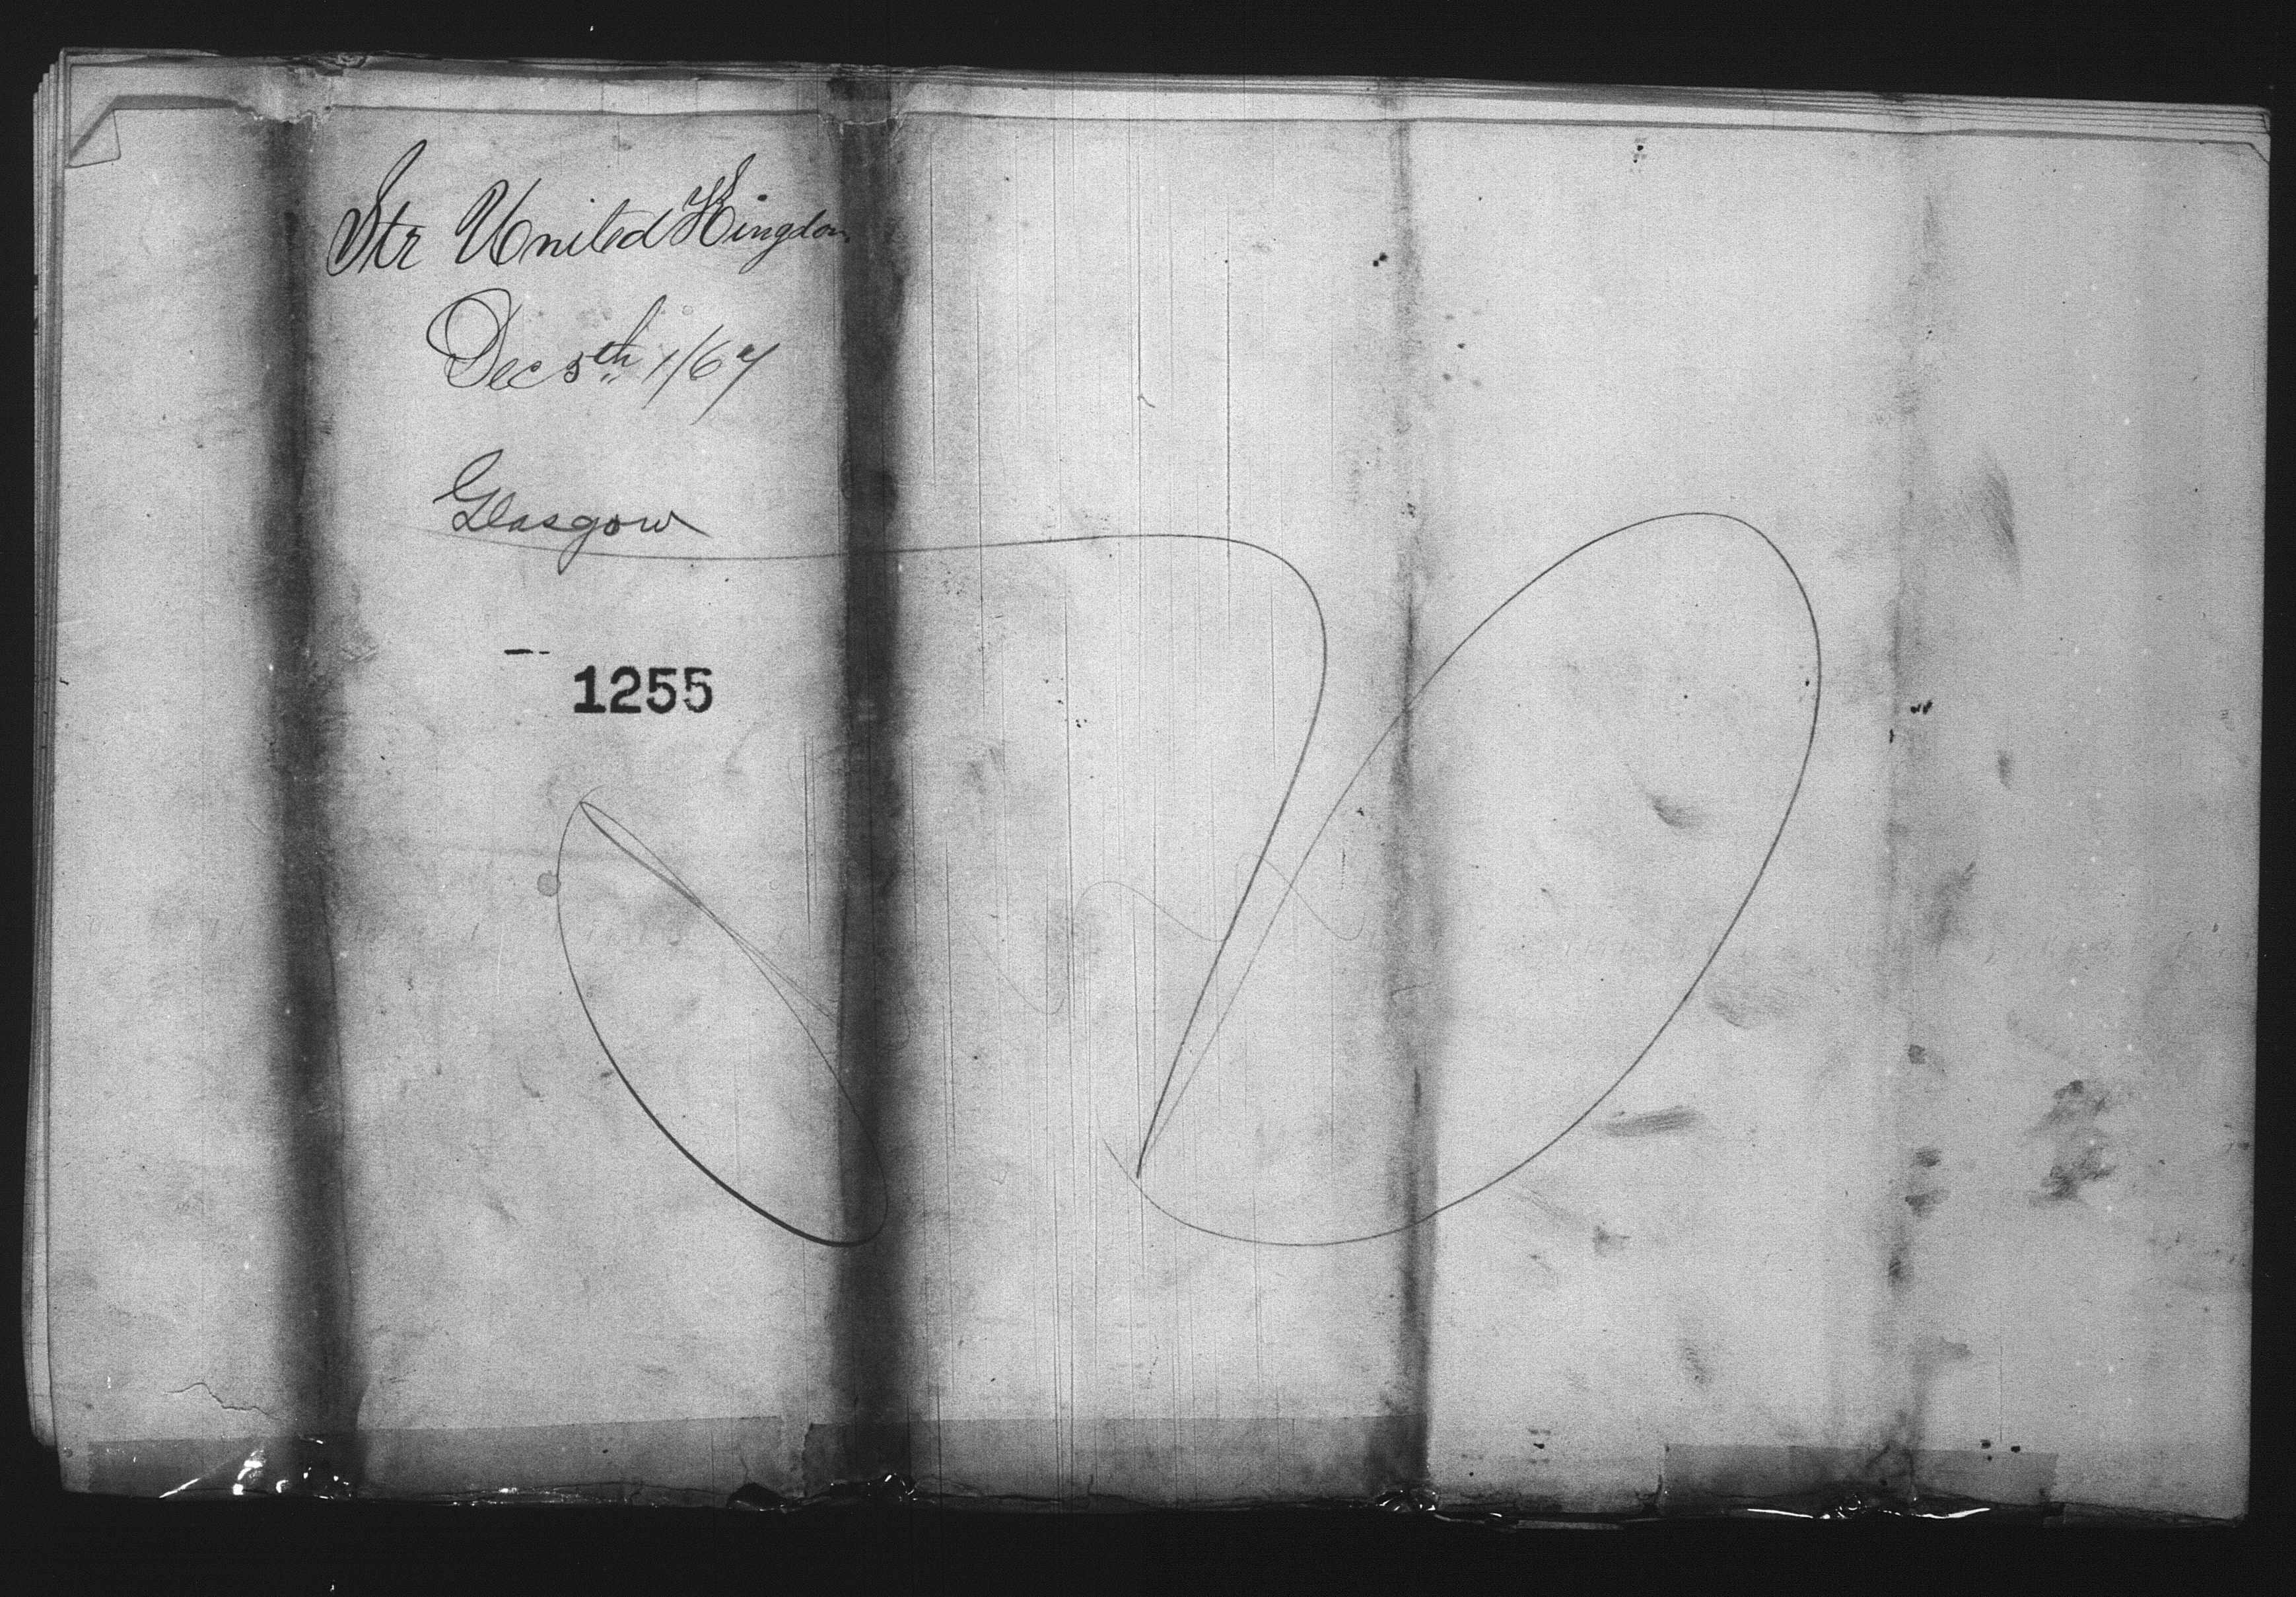 Str United Kingdom
Dec 5th 1/67
Glasgow
1255